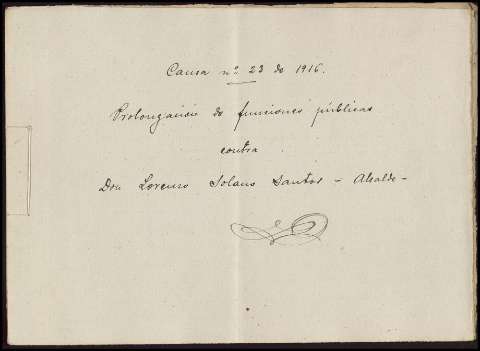 Causa nº 23 de 1916.
Prolongación de funciones públicas
contra
Don Lorenzo Solano Santos - Alcalde -